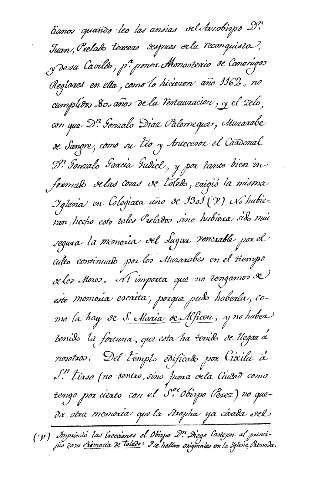 tianos quando leo las ansias del Arzobispo Dn.
Juan, Prelado tercero despues de la reconquista,
y de su Cavildo, pa. poner Monasterio de Canonigos
Reglares en ella, como lo hicieron año 1162, no
cumplidos 80 años de la restauracion, y el zelo,
con que Dn. Gonzalo Diaz Palomeque, Muzarabe
de Sangre, como su tio y Antecesor el Cardenal
Dn. Gonzalo Garcia Gudiel, y por tanto bien in-
formado de las cosas de Toledo, erigió la misma
Iglesia en Colegiata año de 1301 (v) No hubie-
ran hecho esto tales Prelados sino hubiera sido mui
segura la memoria del Lugar venerable por el
culto continuado por los Muzarabes en el tiempo
de los Moros. Ni importa que no tengamos de
esto memoria escrita, porque pudo haberla, co-
mo la hay de S. Maria de Alficen, y no haber
tenido la fortuna, que esta ha tenido de llegar á
nosotros. Del templo edificado por Cixila á
Sn. Tirso (no dentro, sino fuera de la Ciudad como
tengo por cierto con el Sr. Obispo Perez) no que-
da otra memoria que la Stropha ya citada del
(v) Imprimió las Lecciones el Obispo Dn. Diego Castejon al
fin de su Primacia de Toledo. Se hallan originales en la Iglesia